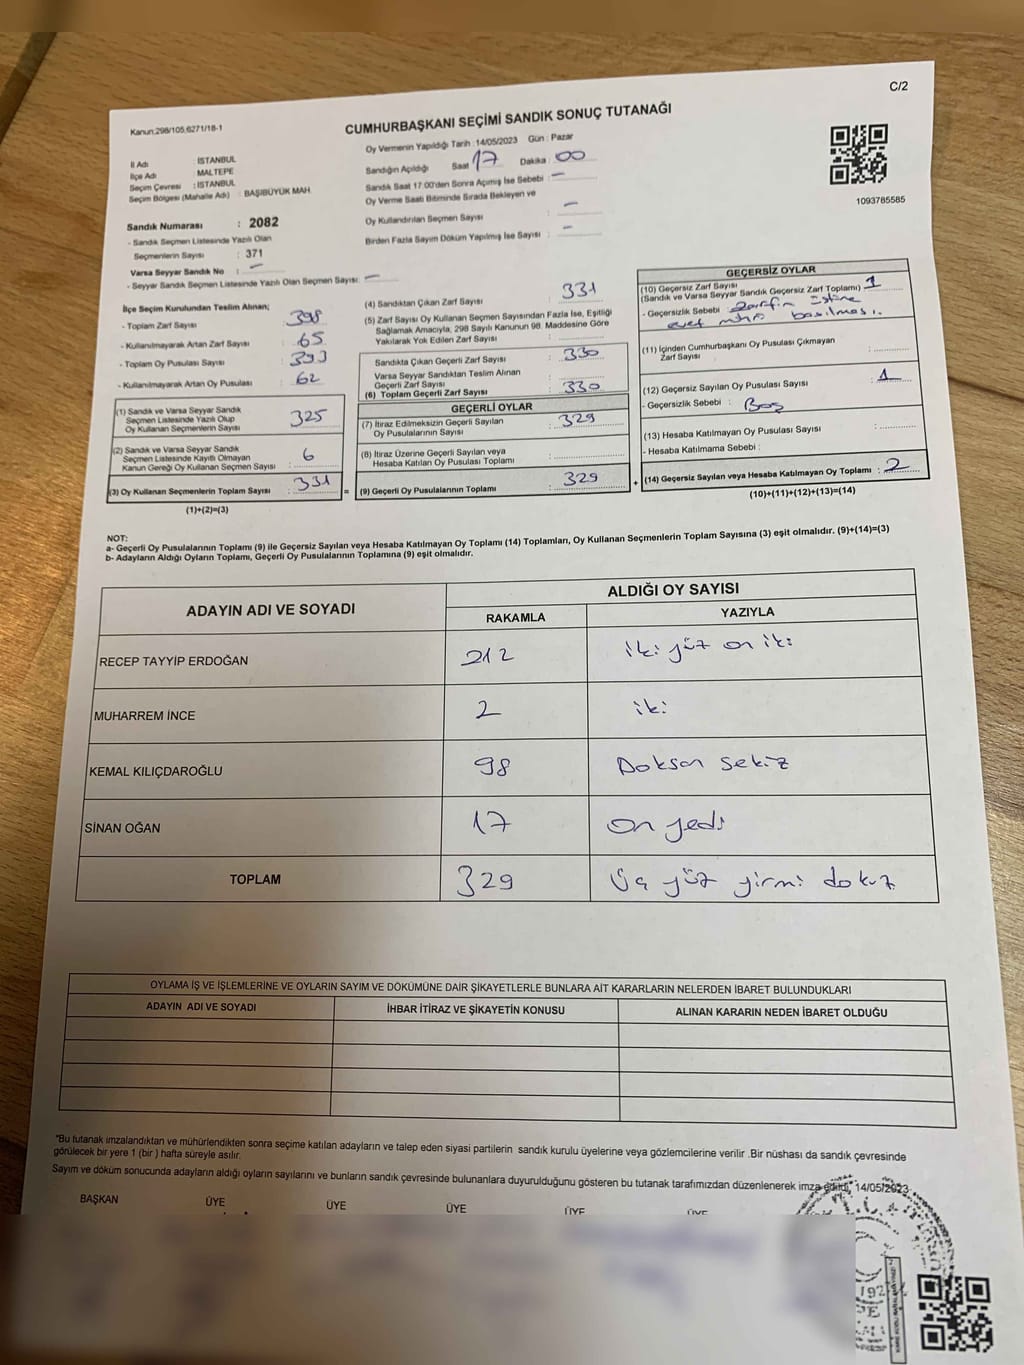 C/2
Kanun:298/105,6271/18-1
CUMHURBAŞKANI SEÇİMİ SANDIK SONUÇ TUTANAĞI
Oy Vermenin Yapıldığı Tarih : 14/05/2023 Gün : Pazar
İl Adı İSTANBUL
İlçe Adı MALTEPE
Seçim Çevresi : İSTANBUL
Seçim Bölgesi (Mahalle Adı) : BAŞIBÜYÜK MAH.
Sandığın Açıldığı Saat 17 Dakika : 00
Sandık Saat 17.00'den Sonra Açımış İse Sebebi : –
Oy Verme Saati Bitiminde Sırada Bekleyen ve
Oy Kullandırılan Seçmen Sayısı : –
Birden Fazla Sayım Döküm Yapılmış İse Sayısı : –
1093785585
Sandık Numarası : 2082
- Sandık Seçmen Listesinde Yazılı Olan
Seçmenlerin Sayısı : 371
Varsa Seyyar Sandık No : –
- Seyyar Sandık Seçmen Listesinde Yazılı Olan Seçmen Sayısı: –
İlçe Seçim Kurulundan Teslim Alınan;
- Toplam Zarf Sayısı 398
- Kullanılmayarak Artan Zarf Sayısı : 65
- Toplam Oy Pusulası Sayısı : 393
- Kullanılmayarak Artan Oy Pusulası : 62
(1) Sandık ve Varsa Seyyar Sandık
Seçmen Listesinde Yazılı Olup
Oy Kullanan Seçmenlerin Sayısı 325
(2) Sandık ve Varsa Seyyar Sandık
Seçmen Listesinde Kayıtlı Olmayan
Kanun Gereği Oy Kullanan Seçmen Sayısı : 6
(3) Oy Kullanan Seçmenlerin Toplam Sayısı : 331
(1)+(2)=(3)
(4) Sandıktan Çıkan Zarf Sayısı 331
(5) Zarf Sayısı Oy Kullanan Seçmen Sayısından Fazla İse, Eşitliği
Sağlamak Amacıyla, 298 Sayılı Kanunun 98. Maddesine Göre
Yakılarak Yok Edilen Zarf Sayısı :
Sandıkta Çıkan Geçerli Zarf Sayısı : 330
Varsa Seyyar Sandıktan Teslim Alınan
Geçerli Zarf Sayısı
(6) Toplam Geçerli Zarf Sayısı : 330
GEÇERLİ OYLAR
(7) İtiraz Edilmeksizin Geçerli Sayılan
Oy Pusulalarının Sayısı : 329
(8) İtiraz Üzerine Geçerli Sayılan veya
Hesaba Katılan Oy Pusulası Toplamı :
= (9) Geçerli Oy Pusulalarının Toplamı : 329 +
GEÇERSİZ OYLAR
(10) Geçersiz Zarf Sayısı
(Sandık ve Varsa Seyyar Sandık Geçersiz Zarf Toplamı) : 1
- Geçersizlik Sebebi : Zarfın üstüne
evet mührü basılması.
(11) İçinden Cumhurbaşkanı Oy Pusulası Çıkmayan
Zarf Sayısı :
(12) Geçersiz Sayılan Oy Pusulası Sayısı : 1
- Geçersizlik Sebebi : Boş
(13) Hesaba Katılmayan Oy Pusulası Sayısı :
- Hesaba Katılmama Sebebi :
(14) Geçersiz Sayılan veya Hesaba Katılmayan Oy Toplamı : 2
(10)+(11)+(12)+(13)=(14)
NOT:
a- Geçerli Oy Pusulalarının Toplamı (9) ile Geçersiz Sayılan veya Hesaba Katılmayan Oy Toplamı (14) Toplamları, Oy Kullanan Seçmenlerin Toplam Sayısına (3) eşit olmalıdır. (9)+(14)=(3)
b- Adayların Aldığı Oyların Toplamı, Geçerli Oy Pusulalarının Toplamına (9) eşit olmalıdır.
ADAYIN ADI VE SOYADI ALDIĞI OY SAYISI
RAKAMLA YAZIYLA
RECEP TAYYİP ERDOĞAN 212 iki yüz on iki
MUHARREM İNCE 2 iki
KEMAL KILIÇDAROĞLU 98 Doksan sekiz
SİNAN OĞAN 17 on yedi
TOPLAM 329 Üç yüz yirmi dokuz
OYLAMA İŞ VE İŞLEMLERİNE VE OYLARIN SAYIM VE DÖKÜMÜNE DAİR ŞİKAYETLERLE BUNLARA AİT KARARLARIN NELERDEN İBARET BULUNDUKLARI
ADAYIN ADI VE SOYADI İHBAR İTİRAZ VE ŞİKAYETİN KONUSU ALINAN KARARIN NEDEN İBARET OLDUĞU
*Bu tutanak imzalandıktan ve mühürlendikten sonra seçime katılan adayların ve talep eden siyasi partilerin sandık kurulu üyelerine veya gözlemcilerine verilir .Bir nüshası da sandık çevresinde
görülecek bir yere 1 (bir ) hafta süreyle asılır.
Sayım ve döküm sonucunda adayların aldığı oyların sayılarını ve bunların sandık çevresinde bulunanlara duyurulduğunu gösteren bu tutanak tarafımızdan düzenlenerek imza edildi. 14/05/2023
BAŞKAN ÜYE ÜYE ÜYE ÜYE ÜYE